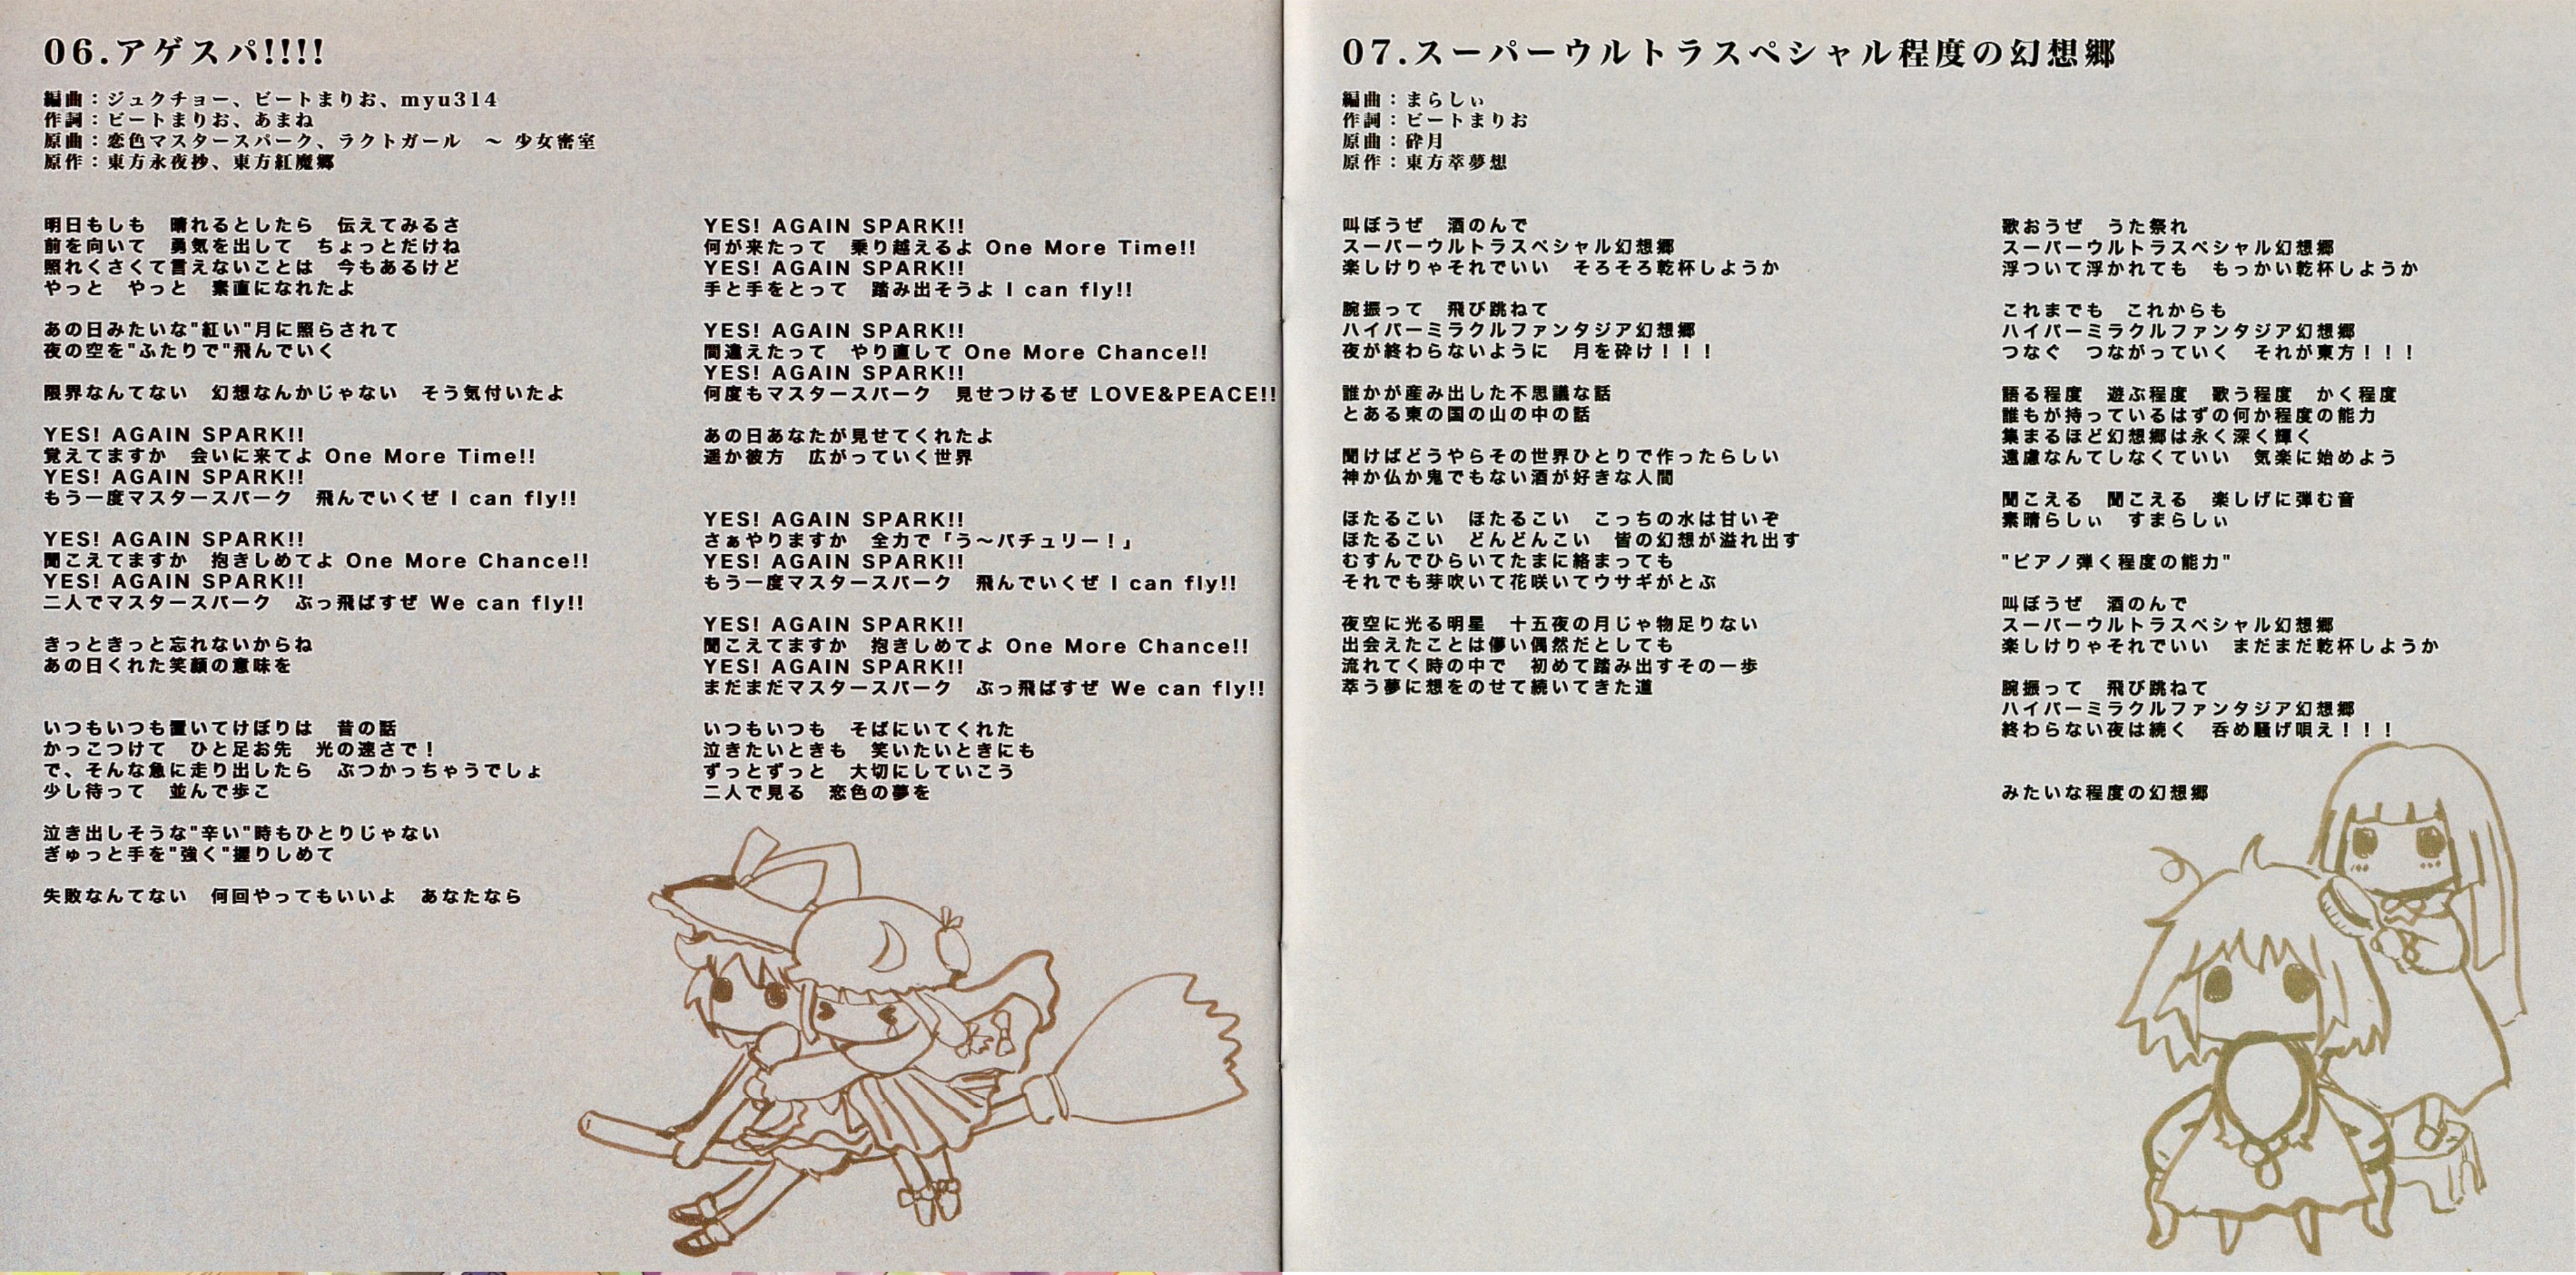 06.アゲスパ!!!!
編曲：ジュクチョー、ビートまりお、myu314
作詞：ビートまりお、あまね
原曲：恋色マスタースパーク、ラクトガール　～ 少女密室
原作：東方永夜抄、東方紅魔郷
明日もしも　晴れるとしたら　伝えてみるさ
前を向いて　勇気を出して　ちょっとだけね
照れくさくて言えないことは　今もあるけど
やっと　やっと　素直になれたよ
あの日みたいな"紅い"月に照らされて
夜の空を"ふたりで"飛んでいく
限界なんてない　幻想なんかじゃない　そう気付いたよ
YES! AGAIN SPARK!!
覚えてますか　会いに来てよ One More Time!!
YES! AGAIN SPARK!!
もう一度マスタースパーク　飛んでいくぜ I can fly!!
YES! AGAIN SPARK!!
聞こえてますか　抱きしめてよ One More Chance!!
YES! AGAIN SPARK!!
二人でマスタースパーク　ぶっ飛ばすぜ We can fly!!
きっときっと忘れないからね
あの日くれた笑顔の意味を
いつもいつも置いてけぼりは　昔の話
かっこつけて　ひと足お先　光の速さで！
で、そんな急に走り出したら　ぶつかっちゃうでしょ
少し待って　並んで歩こ
泣き出しそうな"辛い"時もひとりじゃない
ぎゅっと手を"強く"握りしめて
失敗なんてない　何回やってもいいよ　あなたなら
YES! AGAIN SPARK!!
何が来たって　乗り越えるよ One More Time!!
YES! AGAIN SPARK!!
手と手をとって　踏み出そうよ I can fly!!
YES! AGAIN SPARK!!
間違えたって　やり直して One More Chance!!
YES! AGAIN SPARK!!
何度もマスタースパーク　見せつけるぜ LOVE&PEACE!!
あの日あなたが見せてくれたよ
遥か彼方　広がっていく世界
YES! AGAIN SPARK!!
さぁやりますか　全力で「う～パチュリー！」
YES! AGAIN SPARK!!
もう一度マスタースパーク　飛んでいくぜ I can fly!!
YES! AGAIN SPARK!!
聞こえてますか　抱きしめてよ One More Chance!!
YES! AGAIN SPARK!!
まだまだマスタースパーク　ぶっ飛ばすぜ We can fly!!
いつもいつも　そばにいてくれた
泣きたいときも　笑いたいときにも
ずっとずっと　大切にしていこう
二人で見る　恋色の夢を
07.スーパーウルトラスペシャル程度の幻想郷
編曲：まらしぃ
作詞：ビートまりお
原曲：砕月
原作：東方萃夢想
叫ぼうぜ　酒のんで
スーパーウルトラスペシャル幻想郷
楽しけりゃそれでいい　そろそろ乾杯しようか
腕振って　飛び跳ねて
ハイパーミラクルファンタジア幻想郷
夜が終わらないように　月を砕け！！！
誰かが産み出した不思議な話
とある東の国の山の中の話
聞けばどうやらその世界ひとりで作ったらしい
神か仏か鬼でもない酒が好きな人間
ほたるこい　ほたるこい　こっちの水は甘いぞ
ほたるこい　どんどんこい　皆の幻想が溢れ出す
むすんでひらいてたまに絡まっても
それでも芽吹いて花咲いてウサギがとぶ
夜空に光る明星　十五夜の月じゃ物足りない
出会えたことは儚い偶然だとしても
流れてく時の中で　初めて踏み出すその一歩
萃う夢に想をのせて続いてきた道
歌おうぜ　うた祭れ
スーパーウルトラスペシャル幻想郷
浮ついて浮かれても　もっかい乾杯しようか
これまでも　これからも
ハイパーミラクルファンタジア幻想郷
つなぐ　つながっていく　それが東方！！！
語る程度　遊ぶ程度　歌う程度　かく程度
誰もが持っているはずの何か程度の能力
集まるほど幻想郷は永く深く輝く
遠慮なんてしなくていい　気楽に始めよう
聞こえる　聞こえる　楽しげに弾む音
素晴らしぃ　すまらしぃ
"ピアノ弾く程度の能力"
叫ぼうぜ　酒のんで
スーパーウルトラスペシャル幻想郷
楽しけりゃそれでいい　まだまだ乾杯しようか
腕振って　飛び跳ねて
ハイパーミラクルファンタジア幻想郷
終わらない夜は続く　呑め騒げ唄え！！！
みたいな程度の幻想郷